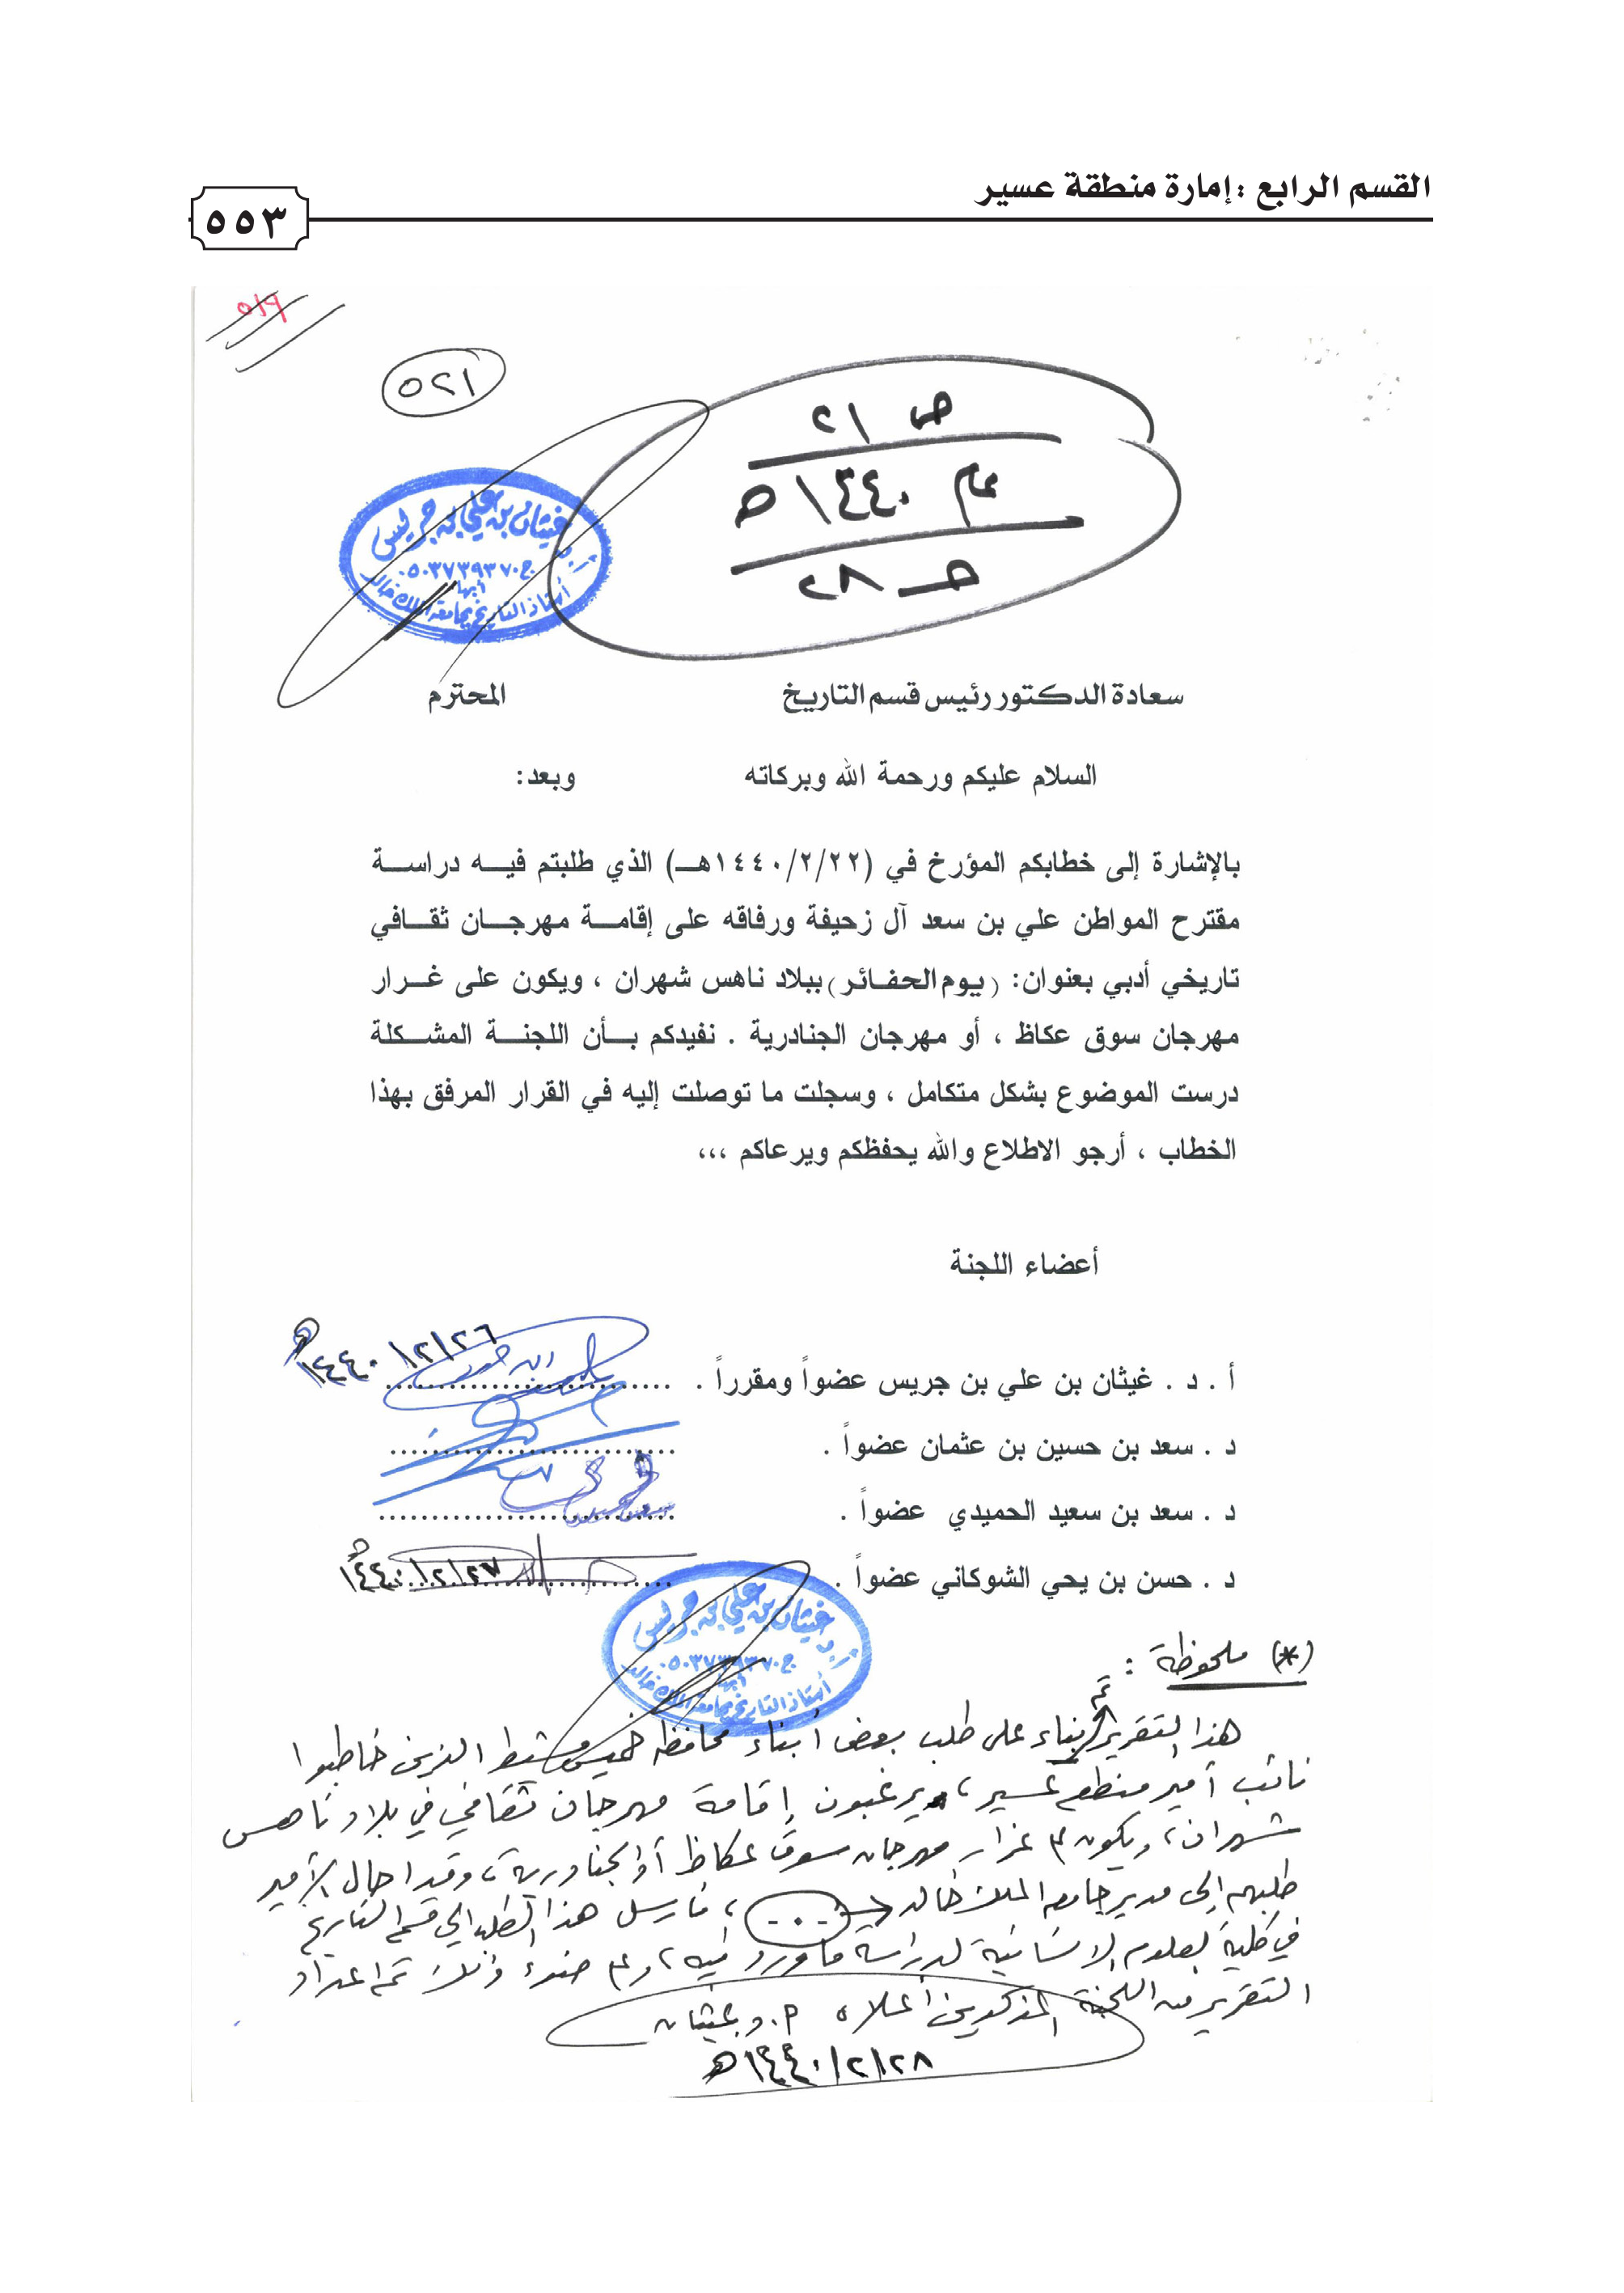 القسم الرابع : إمارة منطقة عسير
٥٥٣
٥٢١
ص ٢١
عام ١٤٤٠هـ
حـ ٢٨
أ.د غيثان بن علي بن جريس
ج ٠٥٠٣٧٣٩٣٧٠
أبها
أستاذ التاريخ بجامعة الملك خالد
سعادة الدكتور رئيس قسم التاريخ المحترم
السلام عليكم ورحمة الله وبركاته وبعد:
بالإشارة إلى خطابكم المؤرخ في (١٤٤٠/٢/٢٢هـ) الذي طلبتم فيه دراسة
مقترح المواطن علي بن سعد آل زحيفة ورفاقه على إقامة مهرجان ثقافي
تاريخي أدبي بعنوان: (يوم الحفائر) ببلاد ناهس شهران ، ويكون على غرار
مهرجان سوق عكاظ ، أو مهرجان الجنادرية . نفيدكم بأن اللجنة المشكلة
درست الموضوع بشكل متكامل ، وسجلت ما توصلت إليه في القرار المرفق بهذا
الخطاب ، أرجو الاطلاع والله يحفظكم ويرعاكم ،،،
أعضاء اللجنة
أ . د . غيثان بن علي بن جريس عضواً ومقرراً . .......................... ١٤٤٠/٢/٢٦هـ
د . سعد بن حسين بن عثمان عضواً . ..........................
د . سعد بن سعيد الحميدي عضواً . ..........................
د . حسن بن يحي الشوكاني عضواً . .......................... ١٤٤٠/٢/٢٧هـ
أ.د غيثان بن علي بن جريس
ج ٠٥٠٣٧٣٩٣٧٠
أبها
أستاذ التاريخ بجامعة الملك خالد
(*) ملحوظة :
هذا التقرير تم بناء على طلب بعض أبناء محافظة خميس مشيط الذين خاطبوا
نائب أمير منطقة عسير ، يرغبون إقامة مهرجان ثقافي في بلاد ناهس
شهران ، ويكون على غرار مهرجان سوق عكاظ أو الجنادرية ، وقد احال الأمير
طلبهم إلى مدير جامعة الملك خالد ، فارسل هذا الطلب إلى قسم التاريخ
في كلية العلوم الانسانية لدراسة ما ورد فيه ، وعلى ضوء ذلك تم اعداد
التقرير من اللجنة المذكورين أعلاه أ.د غيثان
١٤٤٠/٢/٢٨هـ